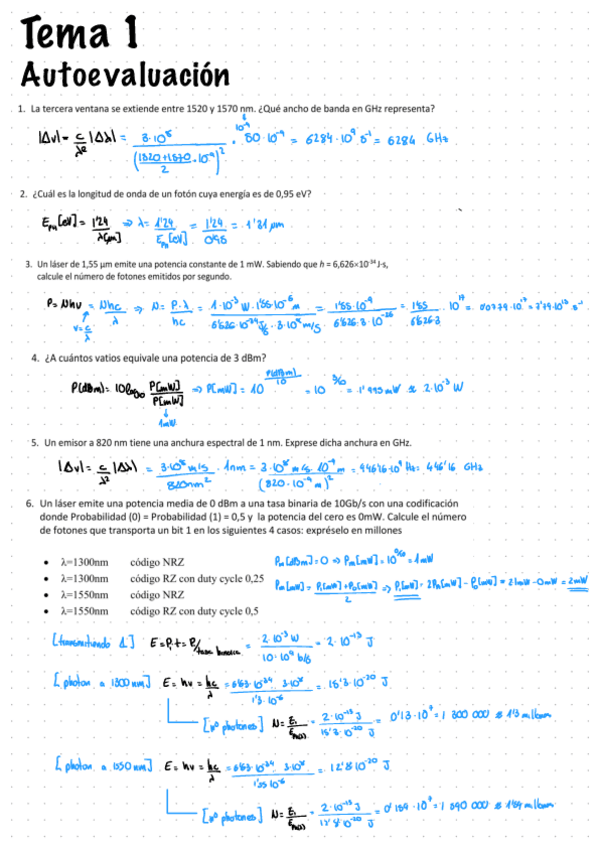 Tema 1
Autoevaluación
1. La tercera ventana se extiende entre 1520 y 1570 nm. ¿Qué ancho de banda en GHz representa?
|Δν| = c/λ² |Δλ| = 3·10⁸ / ((1520+1570)/2 · 10⁻⁹)² · 50·10⁻⁹ = 6284·10⁹ s⁻¹ = 6284 GHz
2. ¿Cuál es la longitud de onda de un fotón cuya energía es de 0,95 eV?
Eph[eV] = 1'24/λ[μm] => λ = 1'24/Eph[eV] = 1'24/0'95 = 1'31 μm
3. Un láser de 1,55 μm emite una potencia constante de 1 mW. Sabiendo que h = 6,626×10⁻³⁴ J·s,
calcule el número de fotones emitidos por segundo.
P = Nhν = Nhc/λ => N = P·λ/hc = 1·10⁻³ W · 1'55·10⁻⁶ m / 6'626·10⁻³⁴ J·s · 3·10⁸ m/s = 1'55·10⁻⁹ / 6'626·3·10⁻²⁶ = 1'55/6'626·3 · 10¹⁷ =
ν = c/λ
4. ¿A cuántos vatios equivale una potencia de 3 dBm?
P(dBm) = 10 log₁₀ P[mW]/P[mW] => P[mW] = 10^(P(dBm)/10) = 10^(3/10) = 1'995 mW ≈ 2·10⁻³ W
1mW
5. Un emisor a 820 nm tiene una anchura espectral de 1 nm. Exprese dicha anchura en GHz.
|Δν| = c/λ² |Δλ| = 3·10⁸ m/s / 820nm² · 1nm = 3·10⁸ m/s · 10⁻⁹ m / (820·10⁻⁹ m)² = 446'16·10⁹ Hz = 446'16 GHz
6. Un láser emite una potencia media de 0 dBm a una tasa binaria de 10Gb/s con una codificación
donde Probabilidad (0) = Probabilidad (1) = 0,5 y la potencia del cero es 0mW. Calcule el número
de fotones que transporta un bit 1 en los siguientes 4 casos: expréselo en millones
• λ=1300nm código NRZ
• λ=1300nm código RZ con duty cycle 0,25
• λ=1550nm código NRZ
• λ=1550nm código RZ con duty cycle 0,5
Pm[dBm] = 0 => Pm[mW] = 10^(0/10) = 1mW
Pm[mW] = P₁[mW]+P₀[mW] / 2 => P₁[mW] = 2Pm[mW] - P₀[mW] = 2·1mW - 0mW = 2mW
[transmitiendo 1] E = P₁·t = P₁/tasa binaria = 2·10⁻³ W / 10·10⁹ b/s = 2·10⁻¹³ J
[photon a 1300nm] E = hν = hc/λ = 6'63·10⁻³⁴ · 3·10⁸ / 1'3·10⁻⁶ = 15'3·10⁻²⁰ J
[nº photones] N = E₁/Eph(λ) = 2·10⁻¹³ J / 15'3·10⁻²⁰ J = 0'13·10⁷ = 1 300 000
[photon a 1550nm] E = hν = hc/λ = 6'63·10⁻³⁴ · 3·10⁸ / 1'55·10⁻⁶ = 12'8·10⁻²⁰ J
[nº photones] N = E₁/Eph(λ) = 2·10⁻¹³ J / 12'8·10⁻²⁰ J